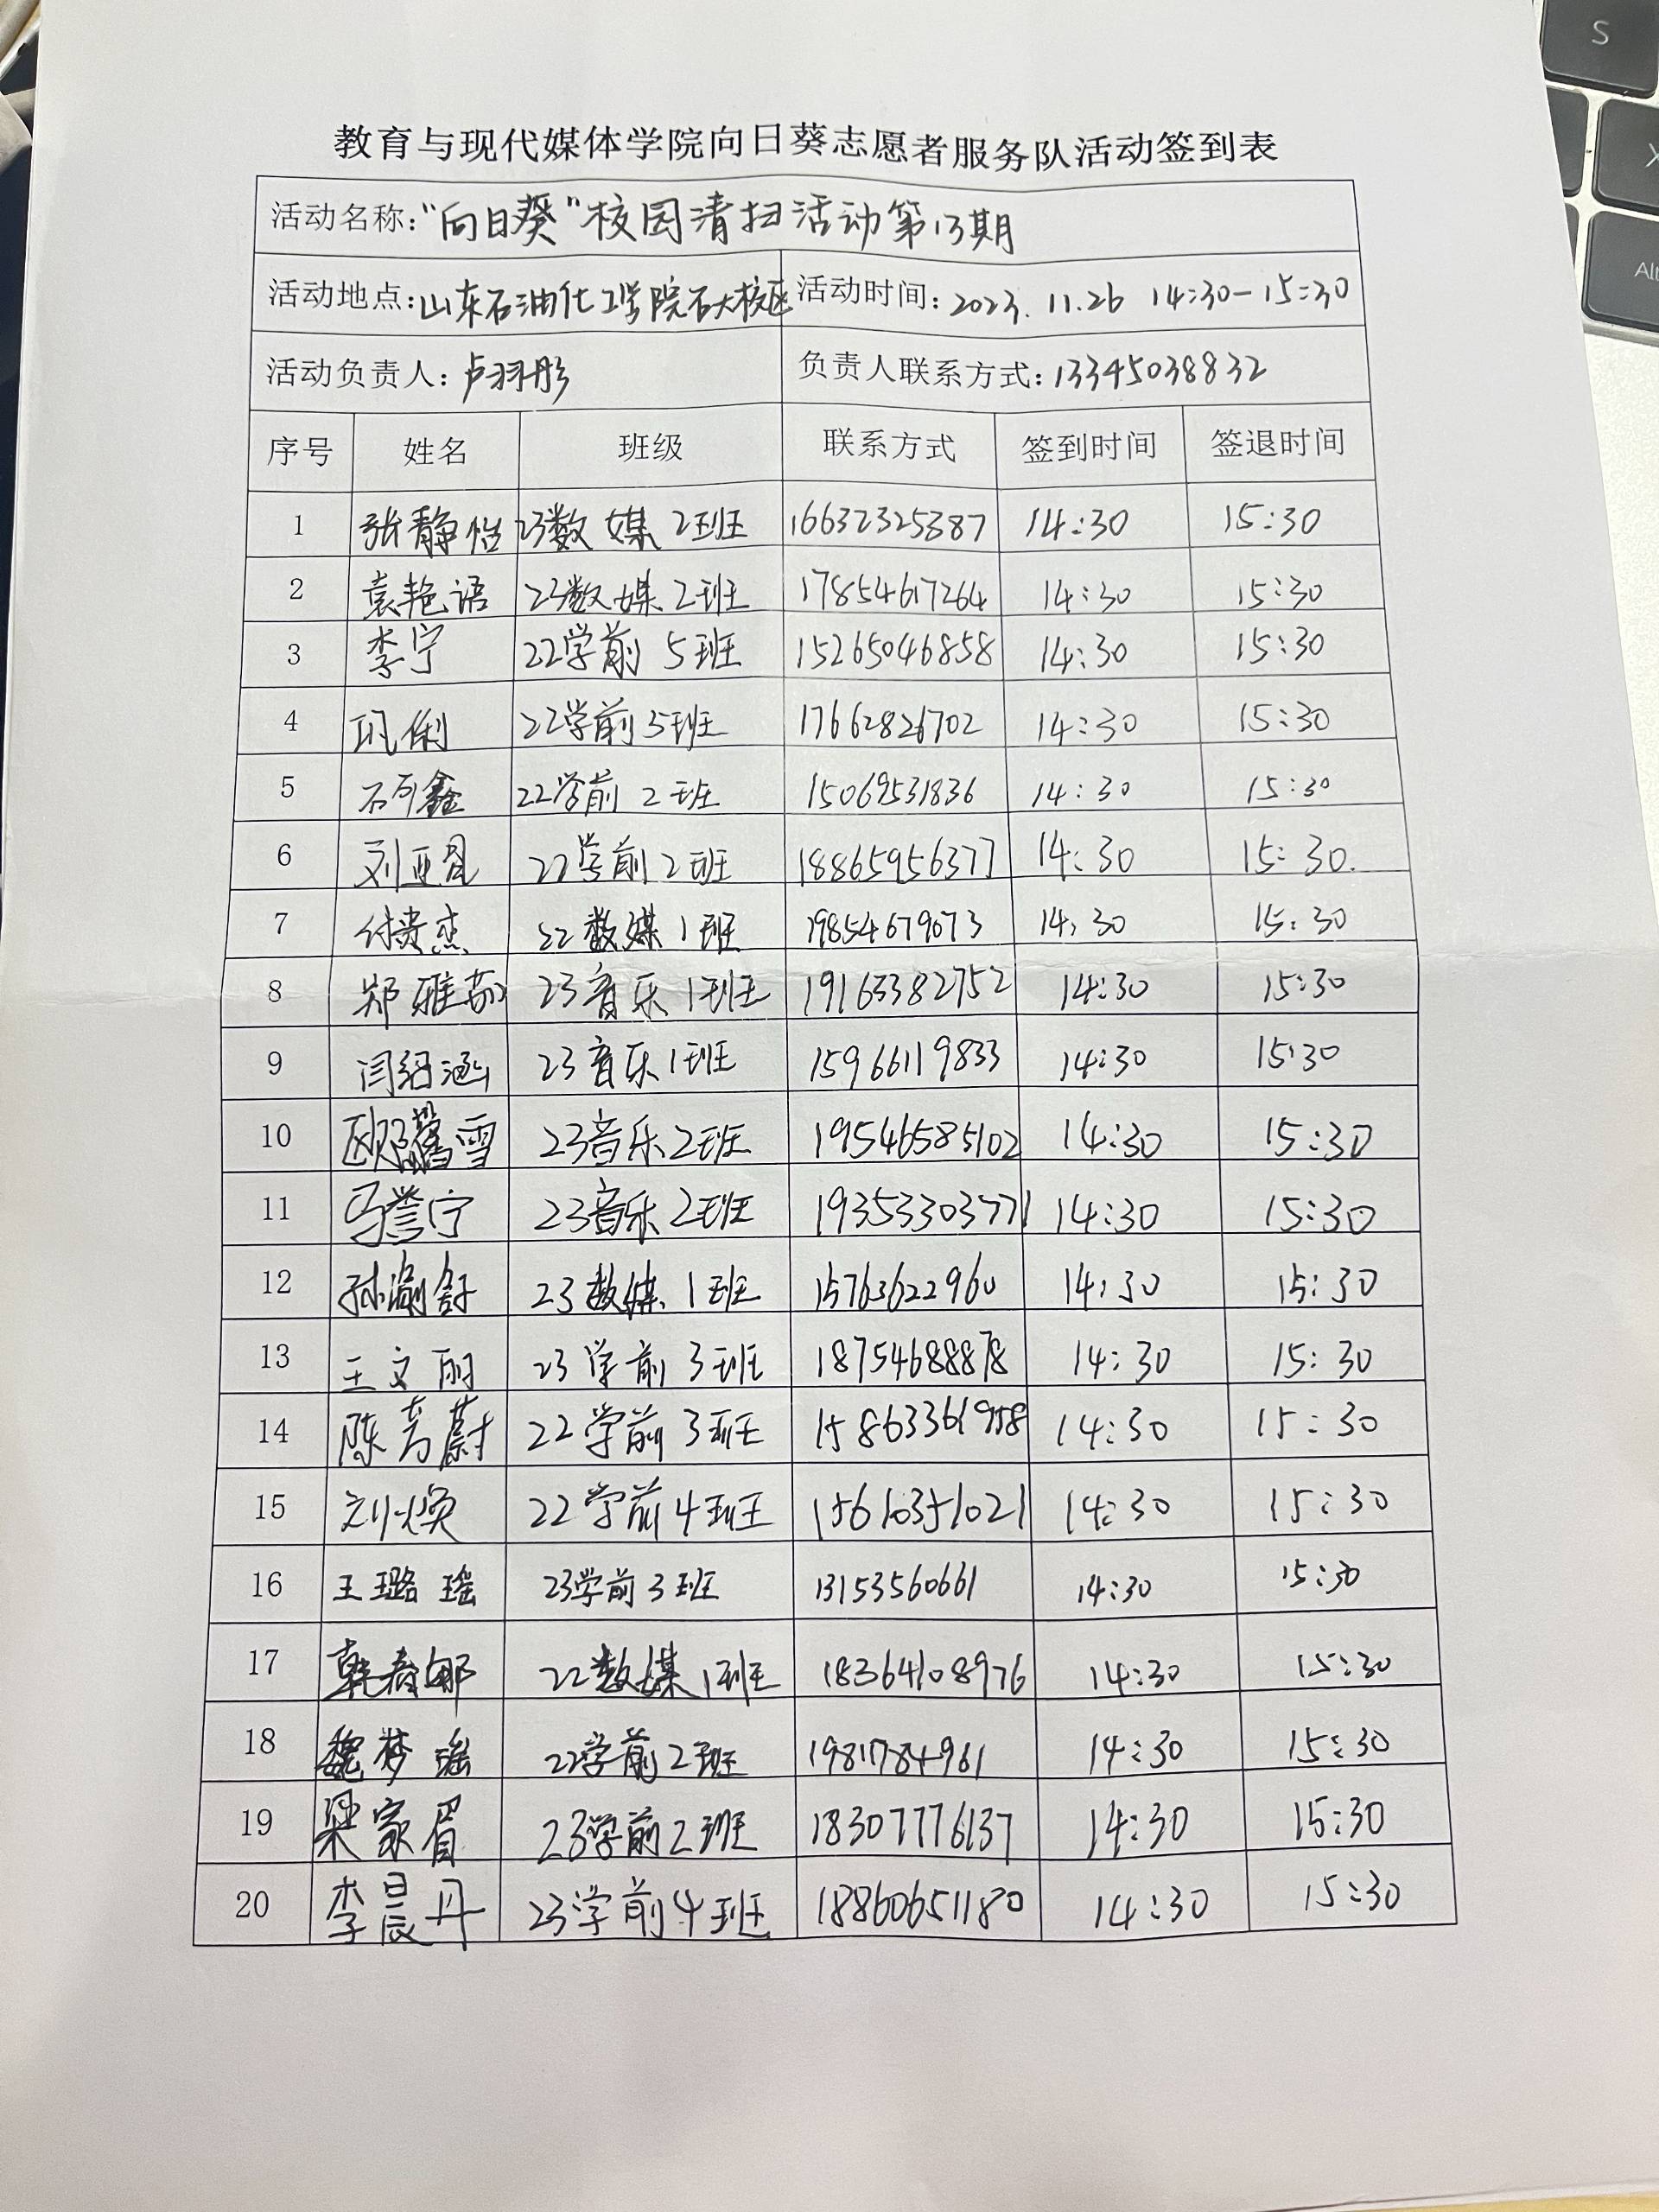 教育与现代媒体学院向日葵志愿者服务队活动签到表
活动名称:"向日葵"校园清扫活动第13期
活动地点:山东石油化工学院石大校区 活动时间:2023.11.26 14:30-15:30
活动负责人:卢羽彤 负责人联系方式:13345038832
序号 姓名 班级 联系方式 签到时间 签退时间
1 张静怡 23数媒2班 16632325387 14:30 15:30
2 袁艳语 23数媒2班 17854617264 14:30 15:30
3 李宁 22学前5班 15265046858 14:30 15:30
4 巩俐 22学前5班 17662826702 14:30 15:30
5 石可鑫 22学前2班 15069531836 14:30 15:30
6 刘亚 22学前2班 18865956377 14:30 15:30.
7 付贵杰 22数媒1班 19854679073 14:30 15:30
8 郑雅茹 23音乐1班 19163382752 14:30 15:30
9 闫绍涵 23音乐1班 15966119833 14:30 15:30
10 雪 23音乐2班 19546585102 14:30 15:30
11 马誉宁 23音乐2班 19353303771 14:30 15:30
12 孙渝舒 23数媒1班 15763622960 14:30 15:30
13 王文丽 23学前3班 18754688878 14:30 15:30
14 陈秀蔚 22学前3班 15863361958 14:30 15:30
15 刘焕 22学前4班 15610351021 14:30 15:30
16 王璐瑶 23学前3班 13153560661 14:30 15:30
17 韩春娜 22数媒1班 18364108976 14:30 15:30
18 魏梦瑶 22学前2班 1981784961 14:30 15:30
19 梁家眉 23学前2班 18307776137 14:30 15:30
20 李晨丹 23学前4班 18860651180 14:30 15:30
S
X
Alt